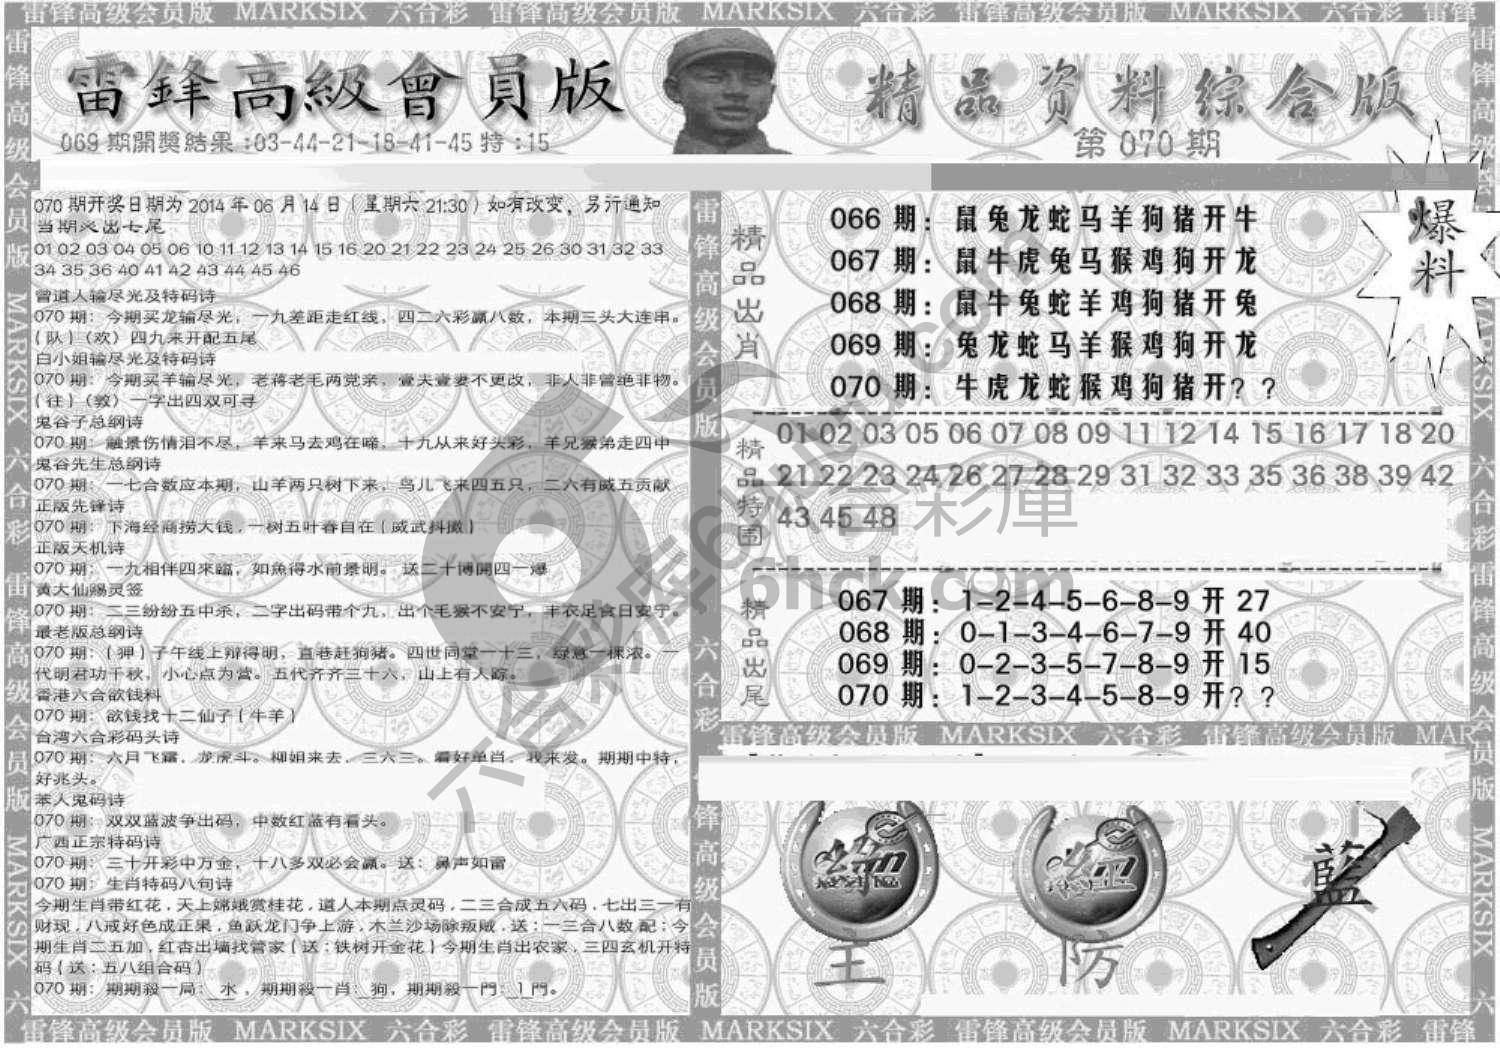 雷锋高级会员版 MARKSIX 六合彩 雷锋高级会员版 MARKSIX 六合彩 雷锋高级会员版 MARKSIX 六合彩 雷锋
雷鋒高級會員版
069 期開獎結果:03-44-21-18-41-45 特:15
精品资料综合版
第 070 期
爆料
070 期开奖日期为 2014 年 06 月 14 日(星期六 21:30)如有改变，另行通知
当期必出七尾
01 02 03 04 05 06 10 11 12 13 14 15 16 20 21 22 23 24 25 26 30 31 32 33
34 35 36 40 41 42 43 44 45 46
曾道人输尽光及特码诗
070 期：今期买龙输尽光，一九差距走红线，四二六彩赢八数，本期三头大连串。
(队)(欢)四九来开配五尾
白小姐输尽光及特码诗
070 期：今期买羊输尽光，老蒋老毛两党亲，壹夫壹妻不更改，非人非曾绝非物。
(往)(敦)一字出四双可寻
鬼谷子总纲诗
070 期：触景伤情泪不尽，羊来马去鸡在啼，十九从来好头彩，羊兄猴弟走四中
鬼谷先生总纲诗
070 期：一七合数应本期，山羊两只树下来，鸟儿飞来四五只，二六有威五贡献
正版先锋诗
070 期：下海经商捞大钱，一树五叶春自在(威武抖擞)
正版天机诗
070 期：一九相伴四來臨，如魚得水前景明。送二十博開四一爆
黄大仙赐灵签
070 期：二三纷纷五中杀，二字出码带个九，出个毛猴不安宁，丰衣足食日安宁。
最老版总纲诗
070 期：(狎)子午线上辩得明，直巷赶狗猪。四世同堂一十三，绿意一棵浓。一
代明君功千秋，小心点为营。五代齐齐三十六，山上有人踪。
香港六合欲钱料
070 期：欲钱找十二仙子(牛羊)
台湾六合彩码头诗
070 期：六月飞霜，龙虎斗。柳姐来去，三六三。看好单肖，我来发。期期中特，
好兆头。
苯人鬼码诗
070 期：双双蓝波争出码，中数红蓝有看头。
广西正宗特码诗
070 期：三十开彩中万金，十八多双必会赢。送：鼻声如雷
070 期：生肖特码八句诗
今期生肖带红花，天上嫦娥赏桂花，道人本期点灵码，二三合成五六码，七出三一有
财现，八戒好色成正果，鱼跃龙门争上游，木兰沙场除叛贼，送：一三合八数 配：今
期生肖二五加，红杏出墙找管家(送：铁树开金花)今期生肖出农家，三四玄机开特
码(送：五八组合码)
070 期：期期殺一局：水，期期殺一肖：狗，期期殺一門：1 門。
精品出肖
066 期：鼠兔龙蛇马羊狗猪开牛
067 期：鼠牛虎兔马猴鸡狗开龙
068 期：鼠牛兔蛇羊鸡狗猪开兔
069 期：兔龙蛇马羊猴鸡狗开龙
070 期：牛虎龙蛇猴鸡狗猪开？？
精品特围
01 02 03 05 06 07 08 09 11 12 14 15 16 17 18 20
21 22 23 24 26 27 28 29 31 32 33 35 36 38 39 42
43 45 48
精品出尾
067 期：1-2-4-5-6-8-9 开 27
068 期：0-1-3-4-6-7-9 开 40
069 期：0-2-3-5-7-8-9 开 15
070 期：1-2-3-4-5-8-9 开？？
雷锋高级会员版 MARKSIX 六合彩 雷锋高级会员版 MAR
主
防
藍
六合彩庫
6hck.com
雷锋高级会员版 MARKSIX 六合彩 雷锋高级会员版 MARKSIX 六合彩 雷锋高级会员版 MARKSIX 六合彩 雷锋